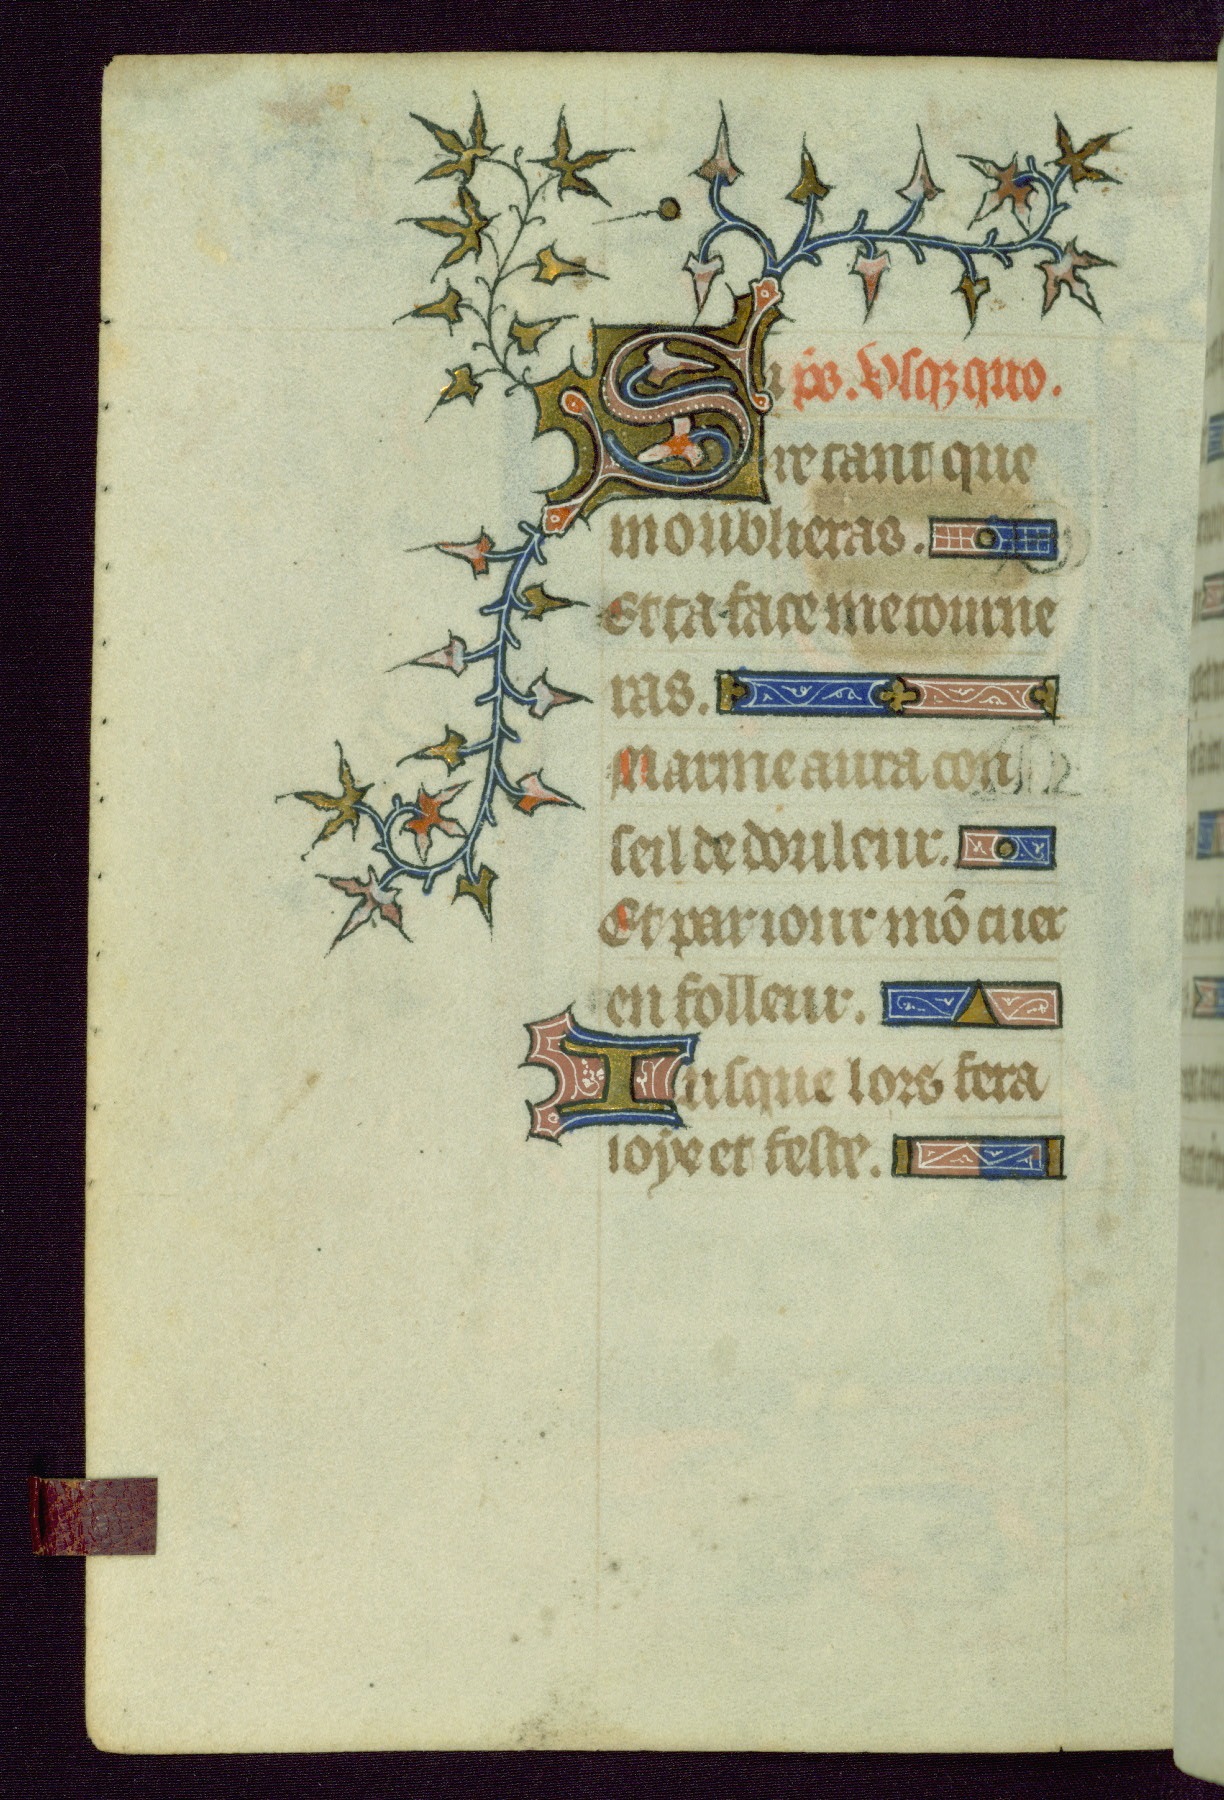 ps. Usq3 quo.
Sire tant que
moublieras.
Et ta face me tourne
ras.
Marme aura con
seil de douleur.
Et par iour mõ cuer
en folleur.
Iusque lors fera
ioye et feste.